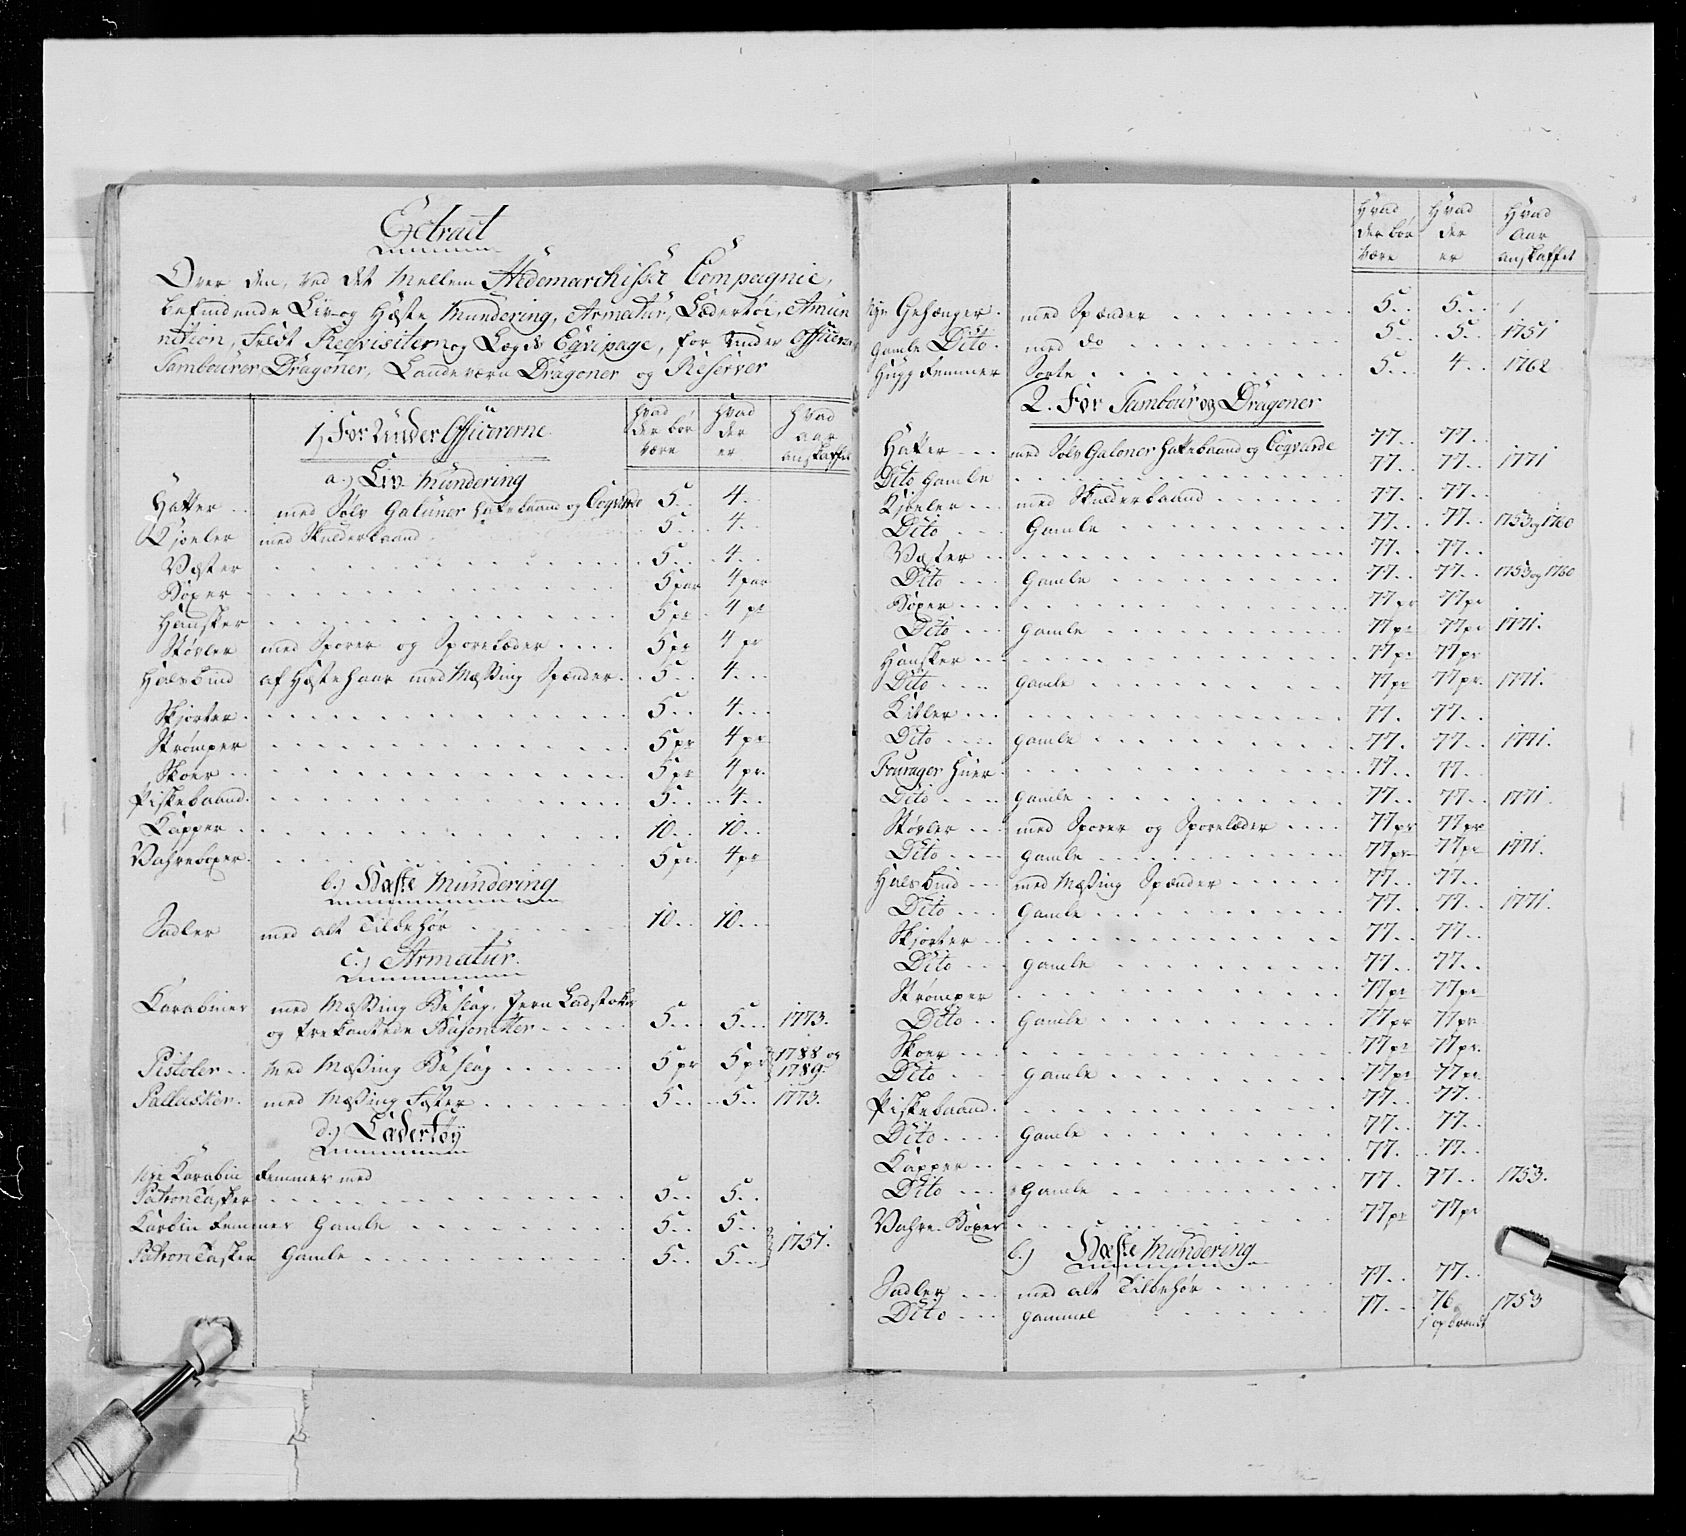 Extract
Over den, ved det Mellem Hedemarchiske Compagnie,
befindende Liv og Hæste Mundering, Armatur, Lædertöi, Amun
nition, Feldt Reqvisitern og Læg ds Eqvipage, for Under Officerer
Tambourer Dragoner, Landeværn Dragoner og Reserver
1, For Under Officererne
Hvad der bör være | Hvad der er | Hvad aar anskaffet
a.) Liv Mundering
Hatter med Sölv Galuner Hattebaand og Coqvarde 5.. 4..
Kjoler med Skulderbaand 5.. 4..
Væster 5.. 4..
Böxer 5 par 4 par
Handsker 5 pr 4 pr
Stövler med Sporer og Sporelæder 5 pr 4 pr
Halsbind af Hæstehaar med Mæssing Spænder 5.. 4..
Skjorter 5.. 4..
Strömper 5 pr 4 pr
Skoer 5 pr 4 pr.
Piskebaand 5.. 4..
Kapper 10.. 10..
Vahreboxer 5 pr. 4 pr
b.) Hæste Mundering
Sadler med alt Tilbehör 10.. 10..
c.) Armatur.
Karabiner med Mæssing Beslag, Jern Ladstokke
og trekantede Bajonetter 5.. 5.. 1773.
Pistoler med Mæssing Beslag 5 pr 5 pr 1788 og 1789
Pallasker med Mæssing Fæster 5.. 5.. 1773.
d.) Lædertöy
nye Karabin Remmer med
Patron Tasker 5.. 5..
Karbin Remmer Gamle 5.. 5..
Patron Tasker Gamle 5.. 5.. 1751.
Hvad der bör være | Hvad der er | Hvad Aar anskaffet
Nye Gehænger med Spænder 5.. 5..
Gamle Dito med do 5.. 5.. 1751
Hugg Remmer Sorte 5.. 4.. 1762
2. For Tambour og Dragoner
Hatter med Sölv Galoner Hattebaand og Coqvarde 77.. 77..
Dito Gamle 77.. 77.. 1771
Kjoler med Skulderbaand 77.. 77..
Dito Gamle 77.. 77.. 1753 og 1760
Væster 77.. 77..
Dito Gamle 77.. 77.. 1753 og 1760
Böxer 77 pr 77 pr
Dito Gamle 77 pr 77 pr 1771.
Handsker 77 pr 77 pr
Dito Gamle 77 pr 77 pr. 1771.
Kitler 77. 77..
Dito Gamle 77. 77.. 1771.
Fourager Huer 77.. 77.
Dito Gamle 77.. 77.. 1771.
Stövler med Sporer og Sporelæder 77 pr 77 pr
Dito Gamle 77 pr 77 pr 1771.
Halsbind med Mæssing Spænder 77.. 77..
Dito Gamle 77.. 77.. 1771.
Skjorter 77.. 77..
Dito Gamle 77.. 77..
Strömper 77 pr 77 pr
Dito Gamle 77 pr 77 pr
Skoer 77 pr 77 pr.
Dito Gamle 77 pr 77 pr
Piskebaand 77.. 77..
Dito Gamle 77.. 77..
Kapper 77. 77..
Dito Gamle 77. 77.. 1753.
Vahre Böxer 77 pr 77 pr
b.) Hæste Mundering
Sadler med alt Tilbehör 77.. 77..
Dito Gammel 77.. 76 1753
1 opbrændt